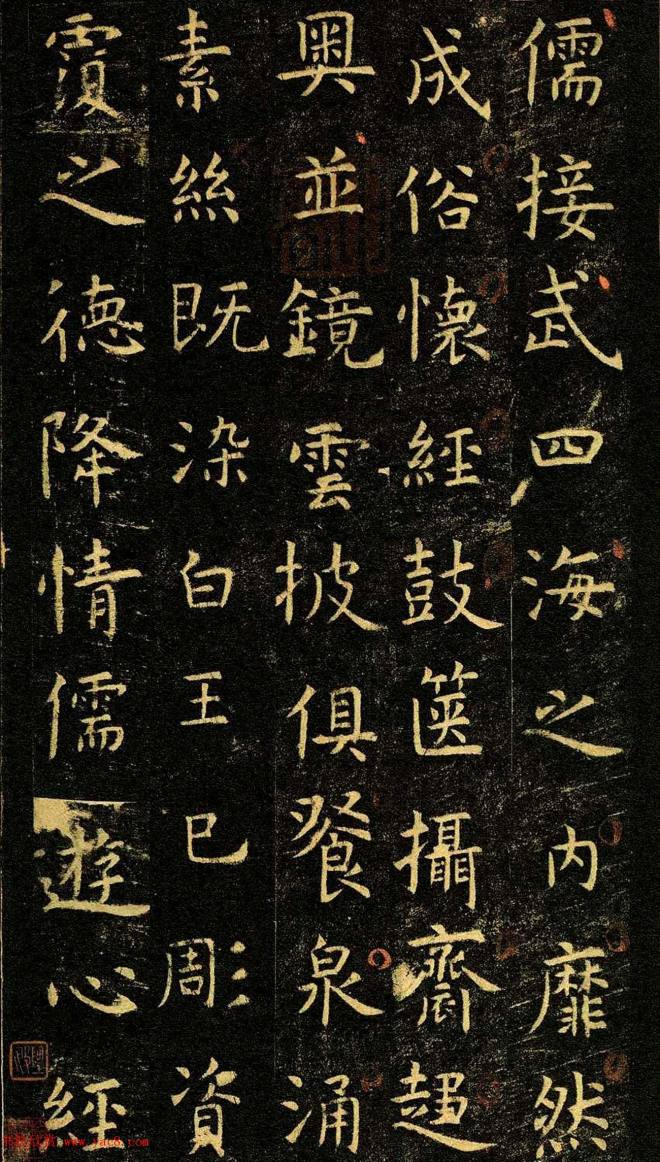 儒接武四海之内靡然
成俗懷經鼓篋攝齋趍
奥並鏡雲披俱餐泉涌
素絲既染白王已彫資
覆之德降情儒遊心經